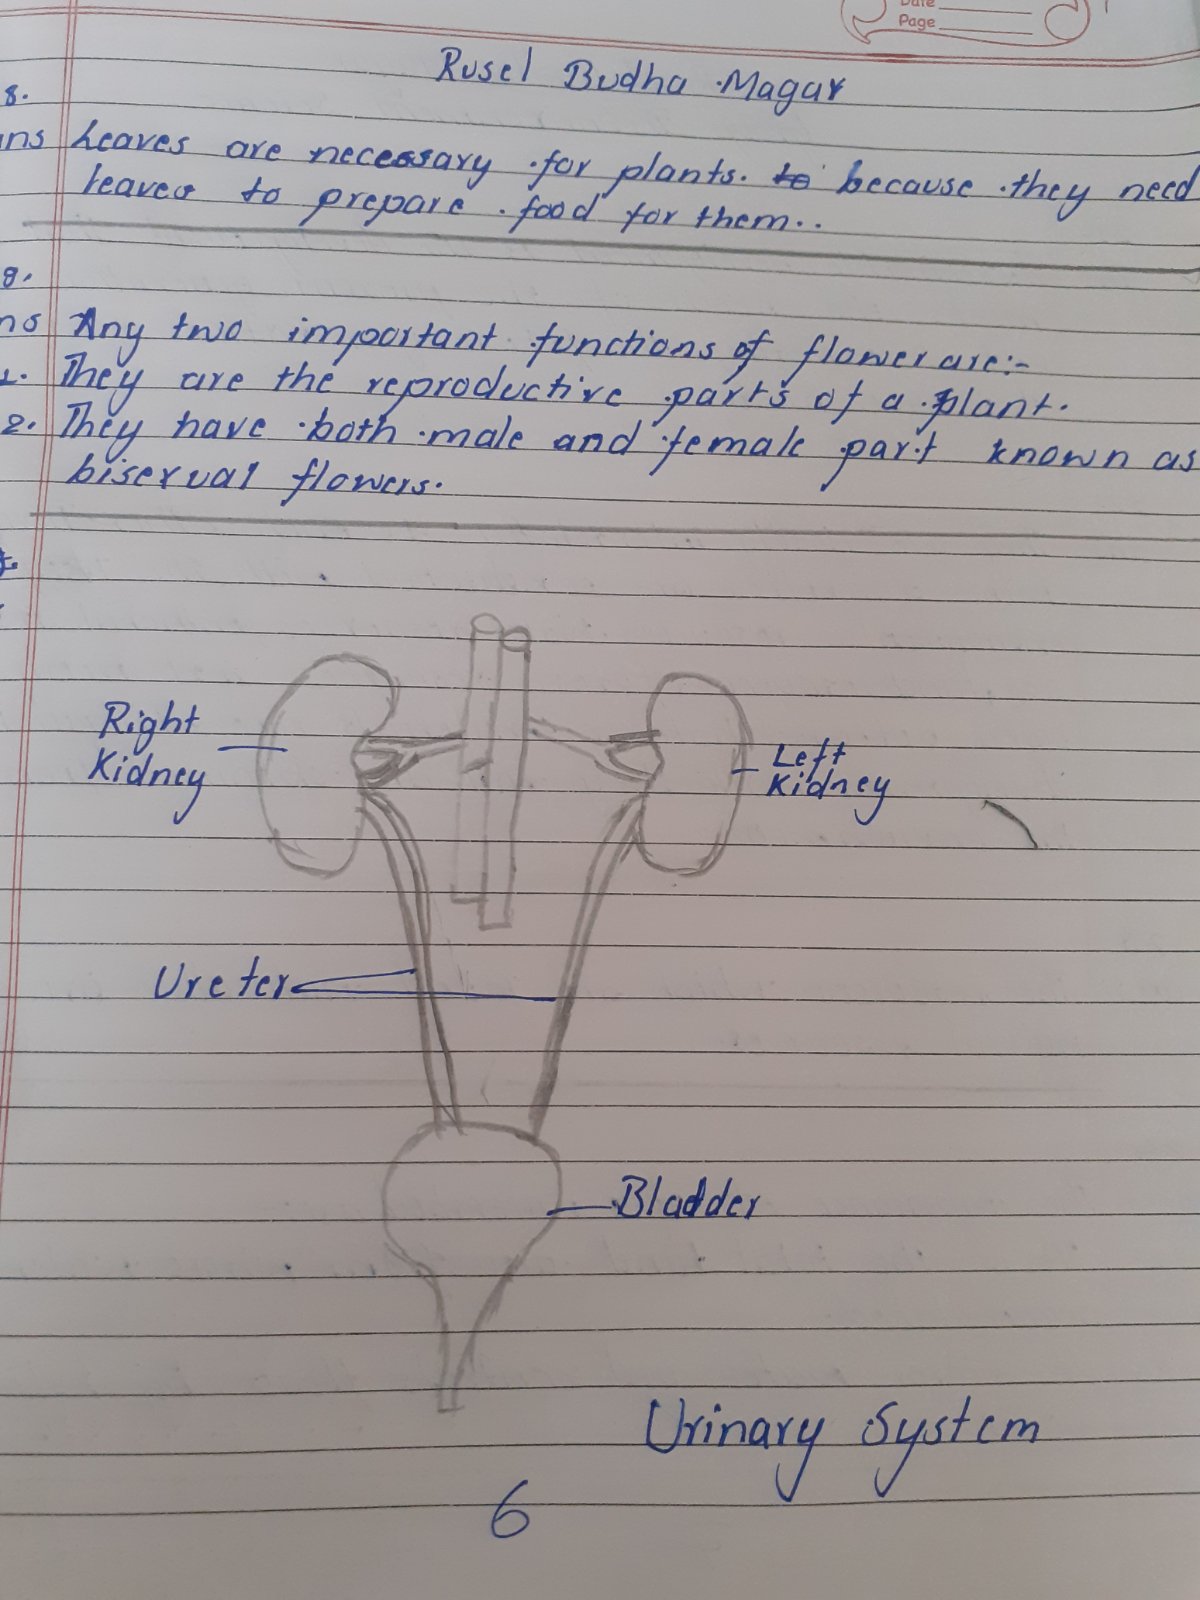 Date
Page
Rusel Budha Magar
8.
ans Leaves are necessary for plants. to because they need
leaves to prepare food for them..
9.
ns Any two important functions of flower are:-
1. They are the reproductive parts of a plant.
2. They have both male and female part known as
bisexual flowers.
Right
Kidney
Left
Kidney
Ureter
Bladder
Urinary System
6